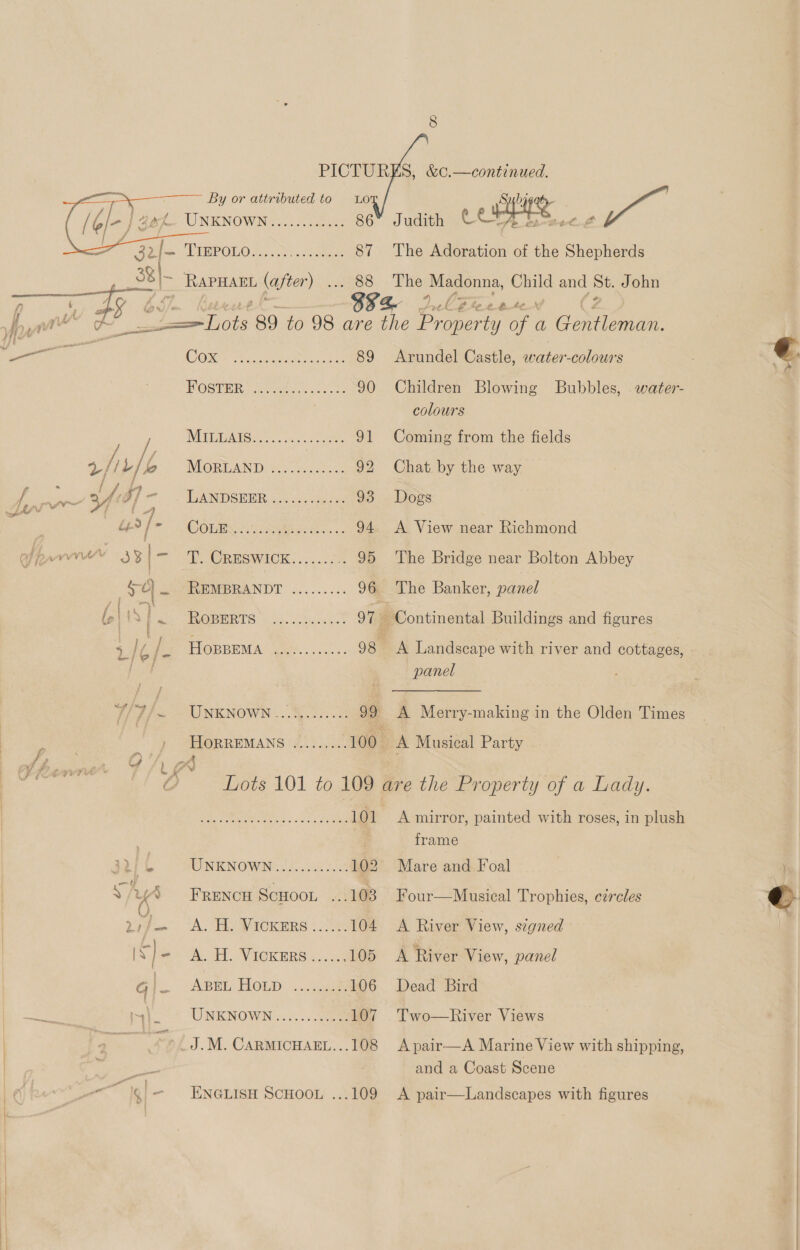 8
PICTURES, &c.—continued.
By or attributed to LOT Subject
16/- UNKNOWN............ 86 Judith
32/- TIEPOLO............... 87 The Adoration of the Shepherds
38/- RAPHAEL (after) ... 88 The Madonna, Child and St. John
88a (2)
Lots 89 to 98 are the Property of a Gentleman.
COX ..................... 89 Arundel Castle, water-colours
FOSTER ................ 90 Children Blowing Bubbles, water-
colours
MILLAIS............... 91 Coming from the fields
2/12/6 MORLAND ............ 92 Chat by the way
LANDSEER............ 93 Dogs
COLE.................. 94 A View near Richmond
38/- T. CRESWICK......... 95 The Bridge near Bolton Abbey
REMBRANDT ......... 96 The Banker, panel
ROBERTS ............ 97 Continental Buildings and figures
2/6/- HOBBEMA ............ 98 A Landscape with river and cottages,
panel
7/7/- UNKNOWN............ 99 A Merry-making in the Olden Times
HORREMANS .........100 A Musical Party
Lots 101 to 109 are the Property of a Lady.
101 A mirror, painted with roses, in plush
frame
32/- UNKNOWN............102 Mare and Foal
FRENCH SCHOOL ...103 Four—Musical Trophies, circles
21/- A. H. VICKERS......104 A River View, signed
18/- A. H. VICKERS......105 A River View, panel
9/- ABEL HOLD .........106 Dead Bird
UNKNOWN............107 Two—River Views
J. M. CARMICHAEL...108 A pair—A Marine View with shipping,
and a Coast Scene
18/- ENGLISH SCHOOL ...109 A pair—Landscapes with figures